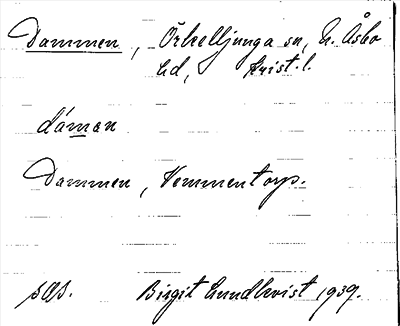 Dammen, Örkelljunga sn, N. Åsbo
hd, Krist. l.
dáman
Dammen, Vemmentorp.
sas. Birgit Lundkvist 1939.